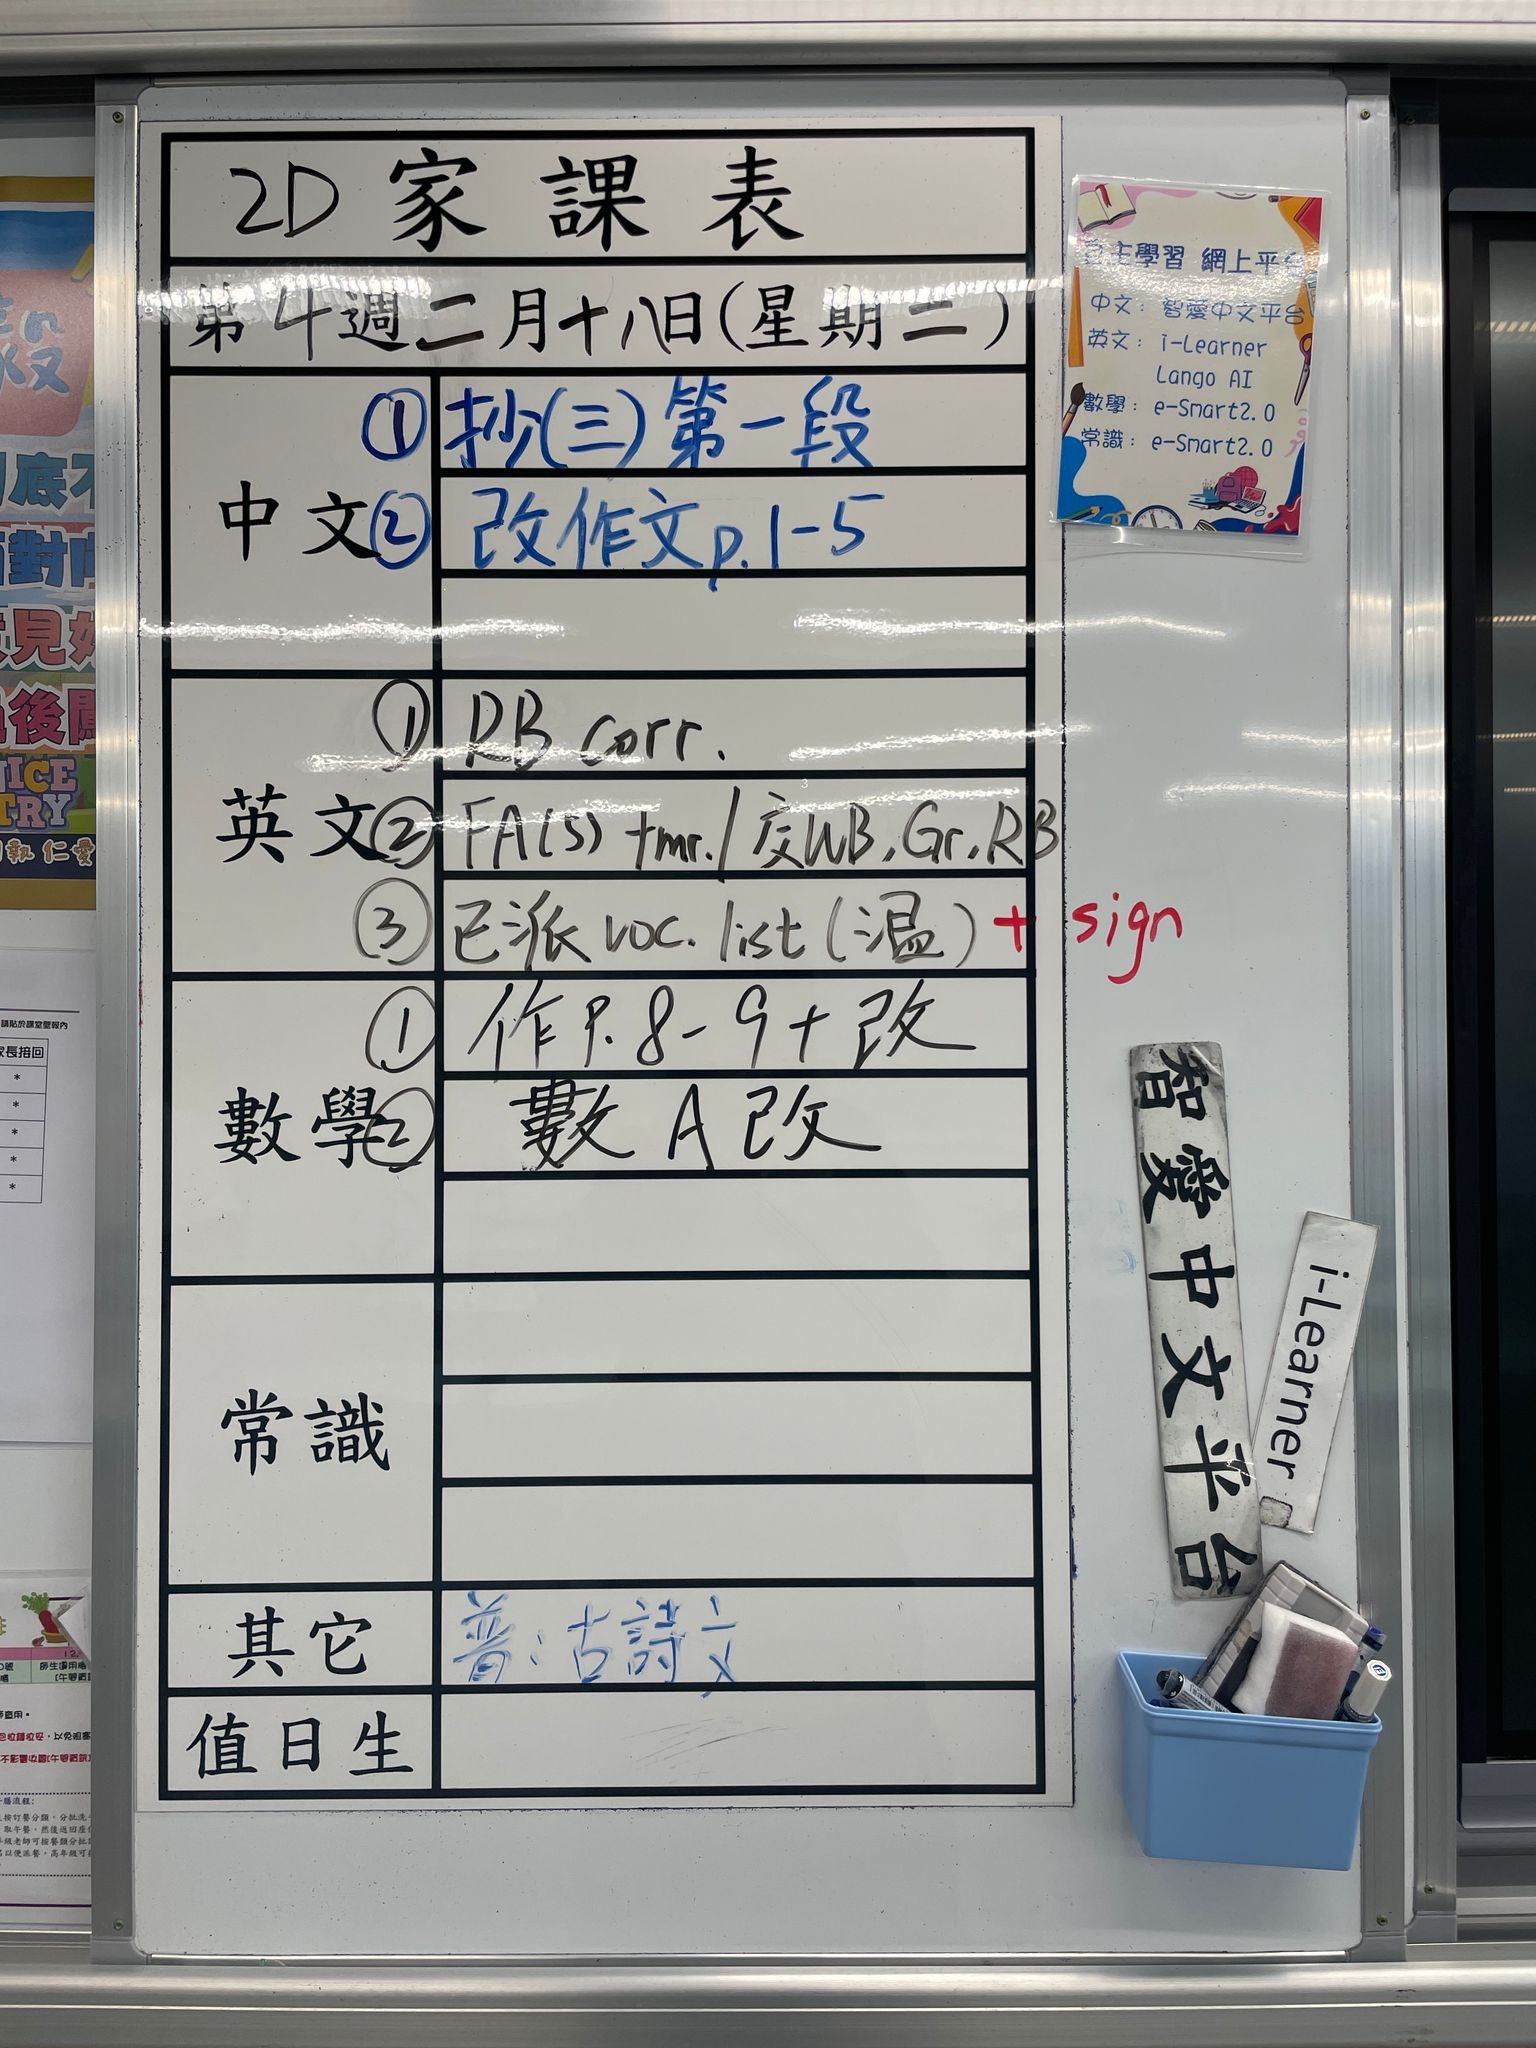 2D 家課表
第4週二月十八日(星期二)
中文
① 抄(三)第一段
② 改作文p.1-5
英文
① RB corr.
② FA(5) tmr./交WB,Gr,RB
③ 已派 voc. list (溫) + sign
數學
① 作P.8-9+改
② 數A改
常識
其它
普:古詩文
值日生
自主學習 網上平台
中文:智愛中文平台
英文:i-Learner
Lango AI
數學:e-Smart2.0
常識:e-Smart2.0
智愛中文平台
i-Learner
NICE
TRY
家長拍回
*
*
*
*
*